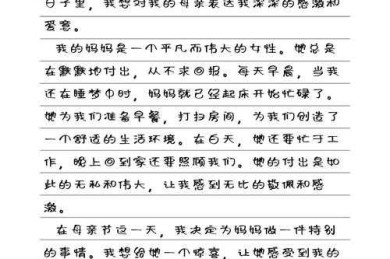 日子里，我想对我的母亲表达我深深的感激和
爱意。
我的妈妈是一个平凡而伟大的女性。她总是
在默默地付出，从不求回报。每天早晨，当我
还在睡梦中时，妈妈就已经起床开始忙碌了。
她为我们准备早餐，打扫房间，为我们创造了
一个舒适的生活环境。在白天，她还要忙于工
作，晚上回到家还要照顾我们。她的付出是如
此的无私和伟大，让我感到无比的敬佩和感
激。
在母亲节这一天，我决定为妈妈做一件特别
的事情。我想给她一个惊喜，让她感受到我的